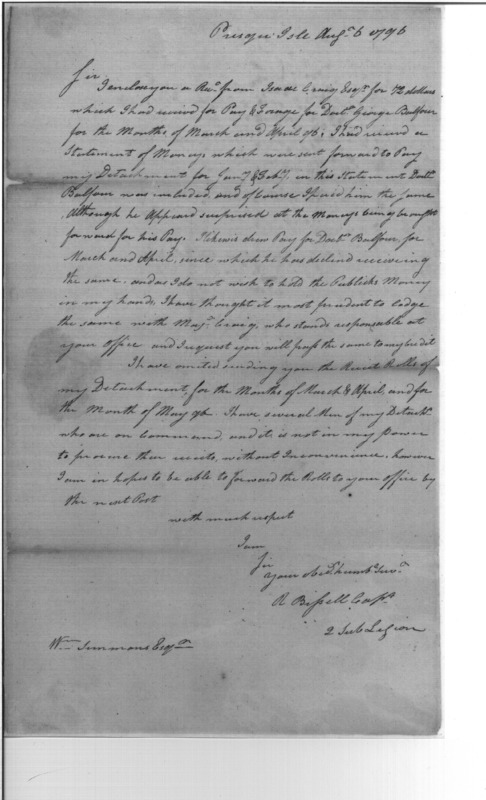 Presque Isle Augt. 6 1796
Sir
I enclose you a Rect. from Isaac Craig Esqr. for 72 dollars
which I had recievd for Pay & Forage for Doctr. George Balfour
for the Months of March and April 96, I had recievd a
Statement of Moneys which were sent forward to Pay
my Detachment for Jany. & Feby. in this Statement Doctr.
Balfour was included, and of Course I paid him the same
Although he Appeard surprised at the Moneys being brought
forward for his Pay. I likewis drew Pay for Doctr. Balfour for
March and April, since which he has declind receiveing
the same. and as I do not wish to hold the Publicks Money
in my hands, I have thought it most prudent to lodge
the same with Majr. Craig, who stands responsable at
your Office and I request you will pass the same to my credit
I have omited sending you the Reciet Rolls of
my Detachment, for the Months of March & April, and for
the Month of May 96. I have several Men of my Detacht.
who are on Command, and it is not in my power
to procure their reciets, without Inconvenience. however
I am in hopes to be able to forward the Rolls to your office by
the next Post
with much respect
I am
Sir
your Obdt. humbl. Servt.
R Bissell Capt.
2 Sub Legion
Wm. Simmons Esqr.